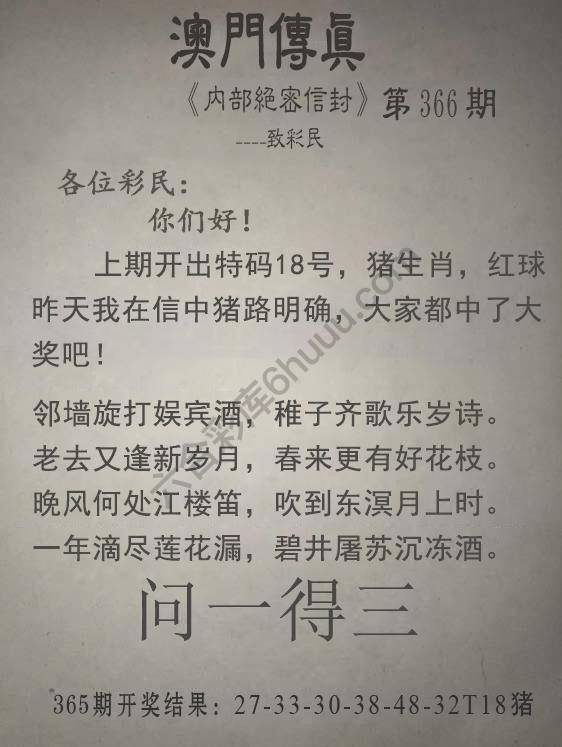 澳門傳眞
《内部絕密信封》第366期
----致彩民
各位彩民：
你们好！
上期开出特码18号，猪生肖，红球
昨天我在信中猪路明确，大家都中了大
奖吧！
邻墙旋打娱宾酒，稚子齐歌乐岁诗。
老去又逢新岁月，春来更有好花枝。
晚风何处江楼笛，吹到东溟月上时。
一年滴尽莲花漏，碧井屠苏沉冻酒。
问一得三
365期开奖结果：27-33-30-38-48-32T18猪
六合彩库6huuu.com